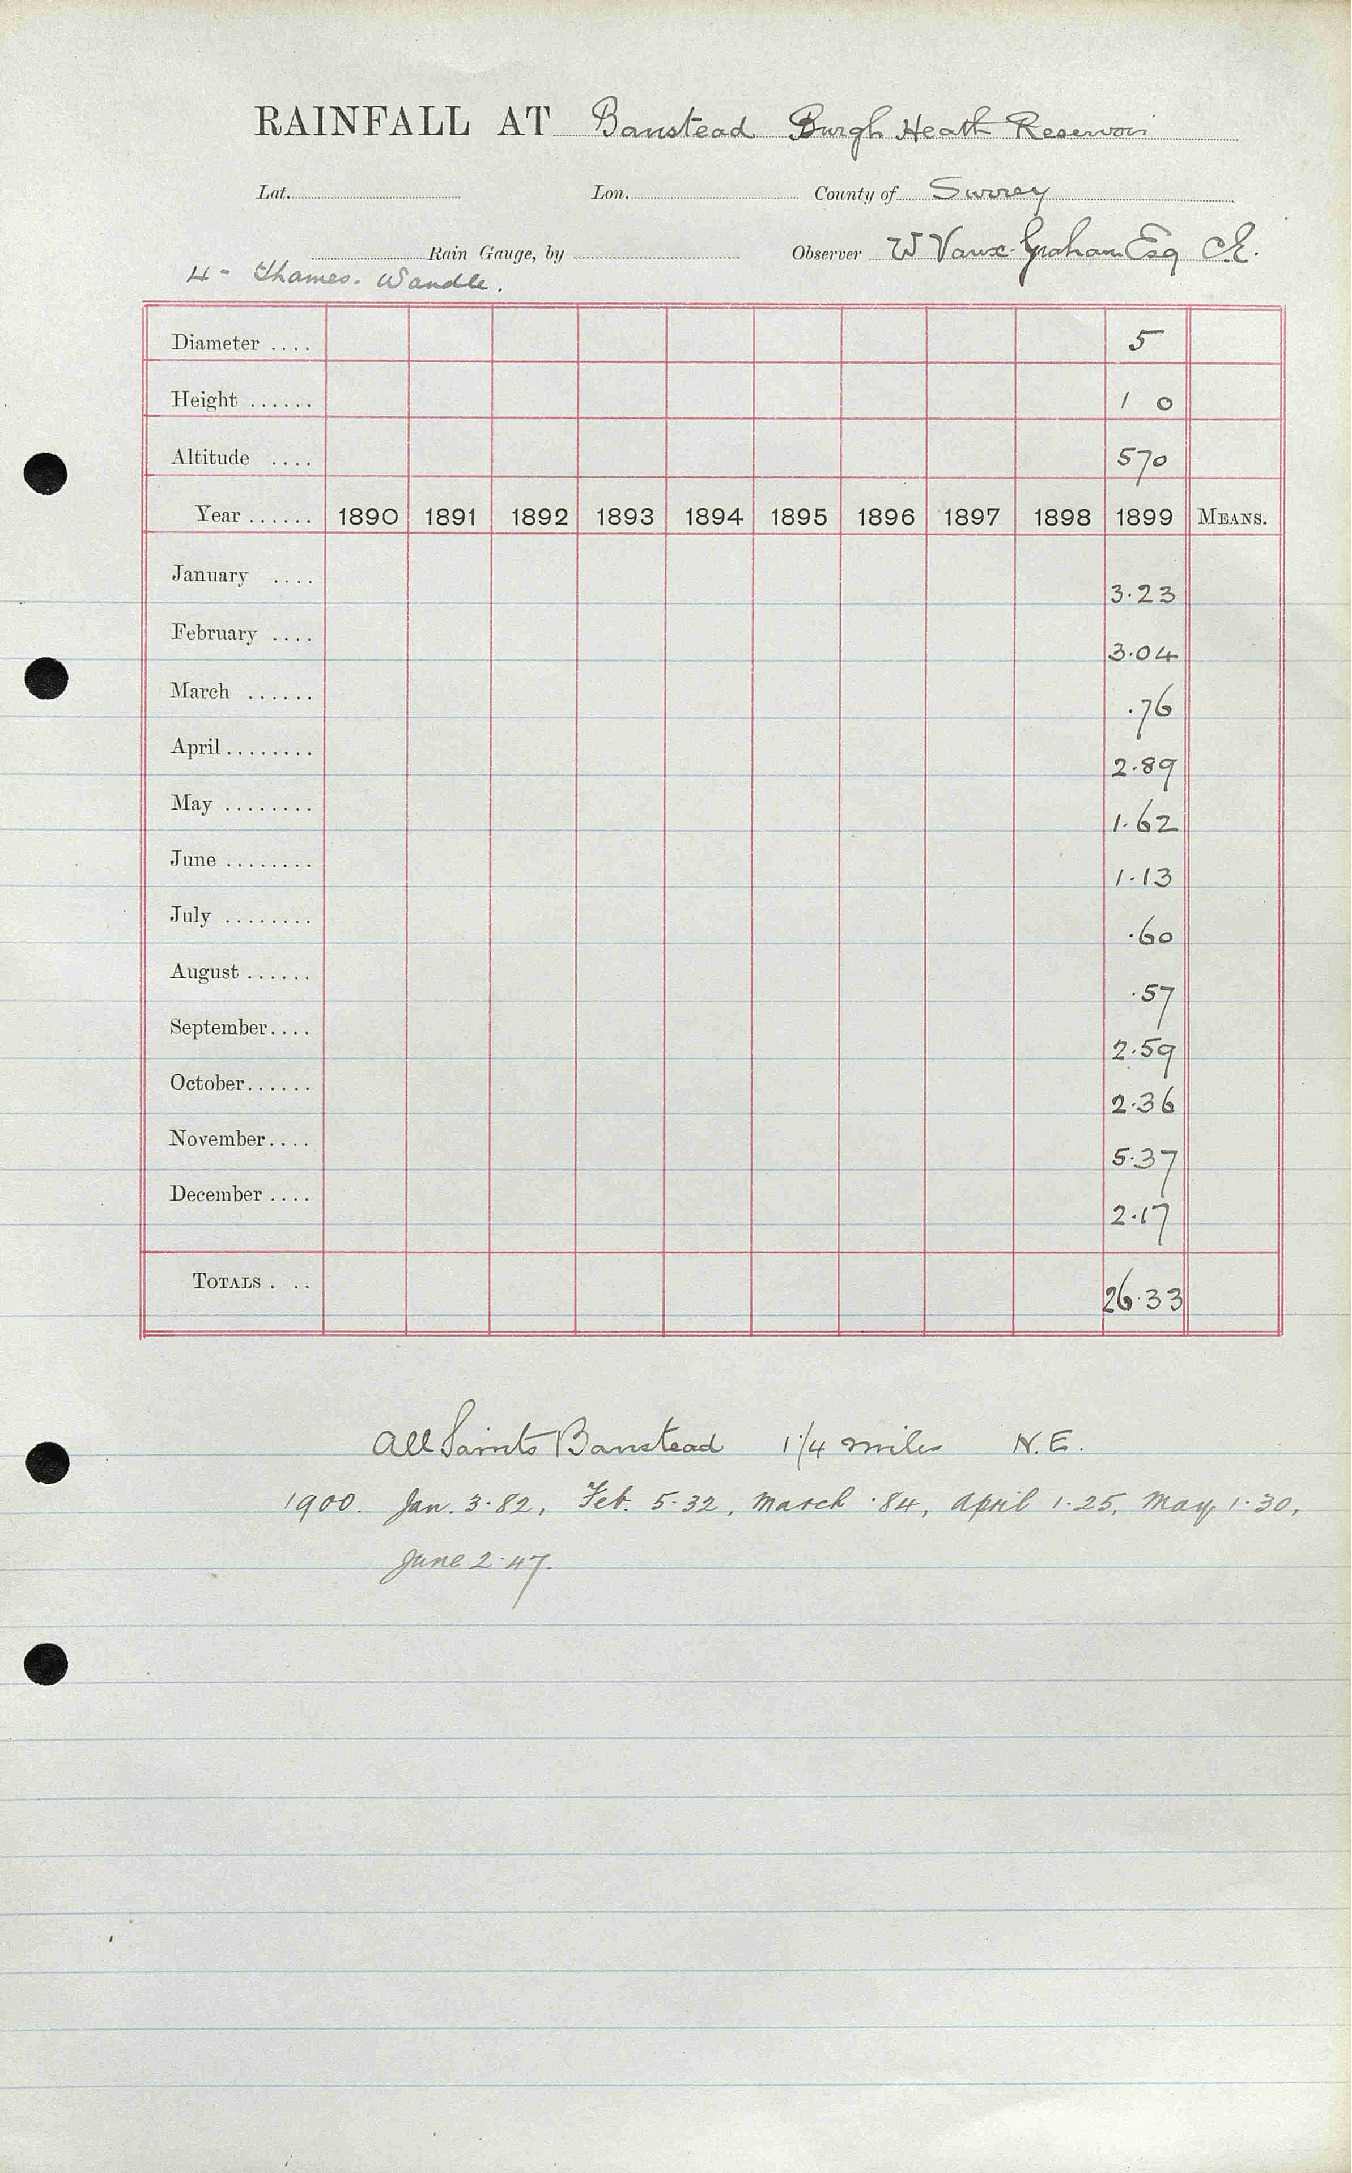 RAINFALL AT Banstead Burgh Heath Reservoir
Lat. Lon. County of Surrey
Rain Gauge, by Observer W Vaux-Graham Esq C.E.
4 - Thames. Wandle.
Diameter .... 5
Height ...... 1 0
Altitude .... 570
Year ...... 1890 1891 1892 1893 1894 1895 1896 1897 1898 1899 MEANS.
January .... 3.23
February .... 3.04
March ...... .76
April ........ 2.89
May ........ 1.62
June ........ 1.13
July ........ .60
August ...... .57
September .... 2.59
October ...... 2.36
November .... 5.37
December .... 2.17
TOTALS . .. 26.33
All Saints Banstead 1 1/4 miles N.E.
1900. Jan. 3.82, Feb. 5.32, March .84, April 1.25, May 1.30,
June 2.47.